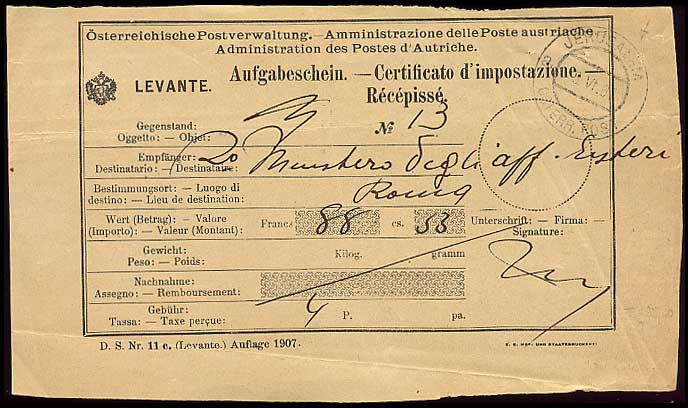 Österreichische Postverwaltung. — Amministrazione delle Poste austriache.
Administration des Postes d'Autriche.
JERUSALEM
ÖSTERR. POST
LEVANTE.
Aufgabeschein. — Certificato d'impostazione. —
Récépissé.
Gegenstand:
Oggetto: — Objet:
№ 13
Empfänger:
Destinatario: — Destinataire:
Ministero degli aff. Esteri
Bestimmungsort: — Luogo di
destino: — Lieu de destination:
Roma
Wert (Betrag): — Valore
(Importo): — Valeur (Montant):
Francs 88 cs. 53
Unterschrift: — Firma: —
Signature:
Gewicht:
Peso: — Poids:
Kilog. gramm
Nachnahme:
Assegno: — Remboursement:
Gebühr:
Tassa: — Taxe perçue:
4 P. pa.
D. S. Nr. 11 c. (Levante.) Auflage 1907.
K. K. HOF- UND STAATSDRUCKEREI